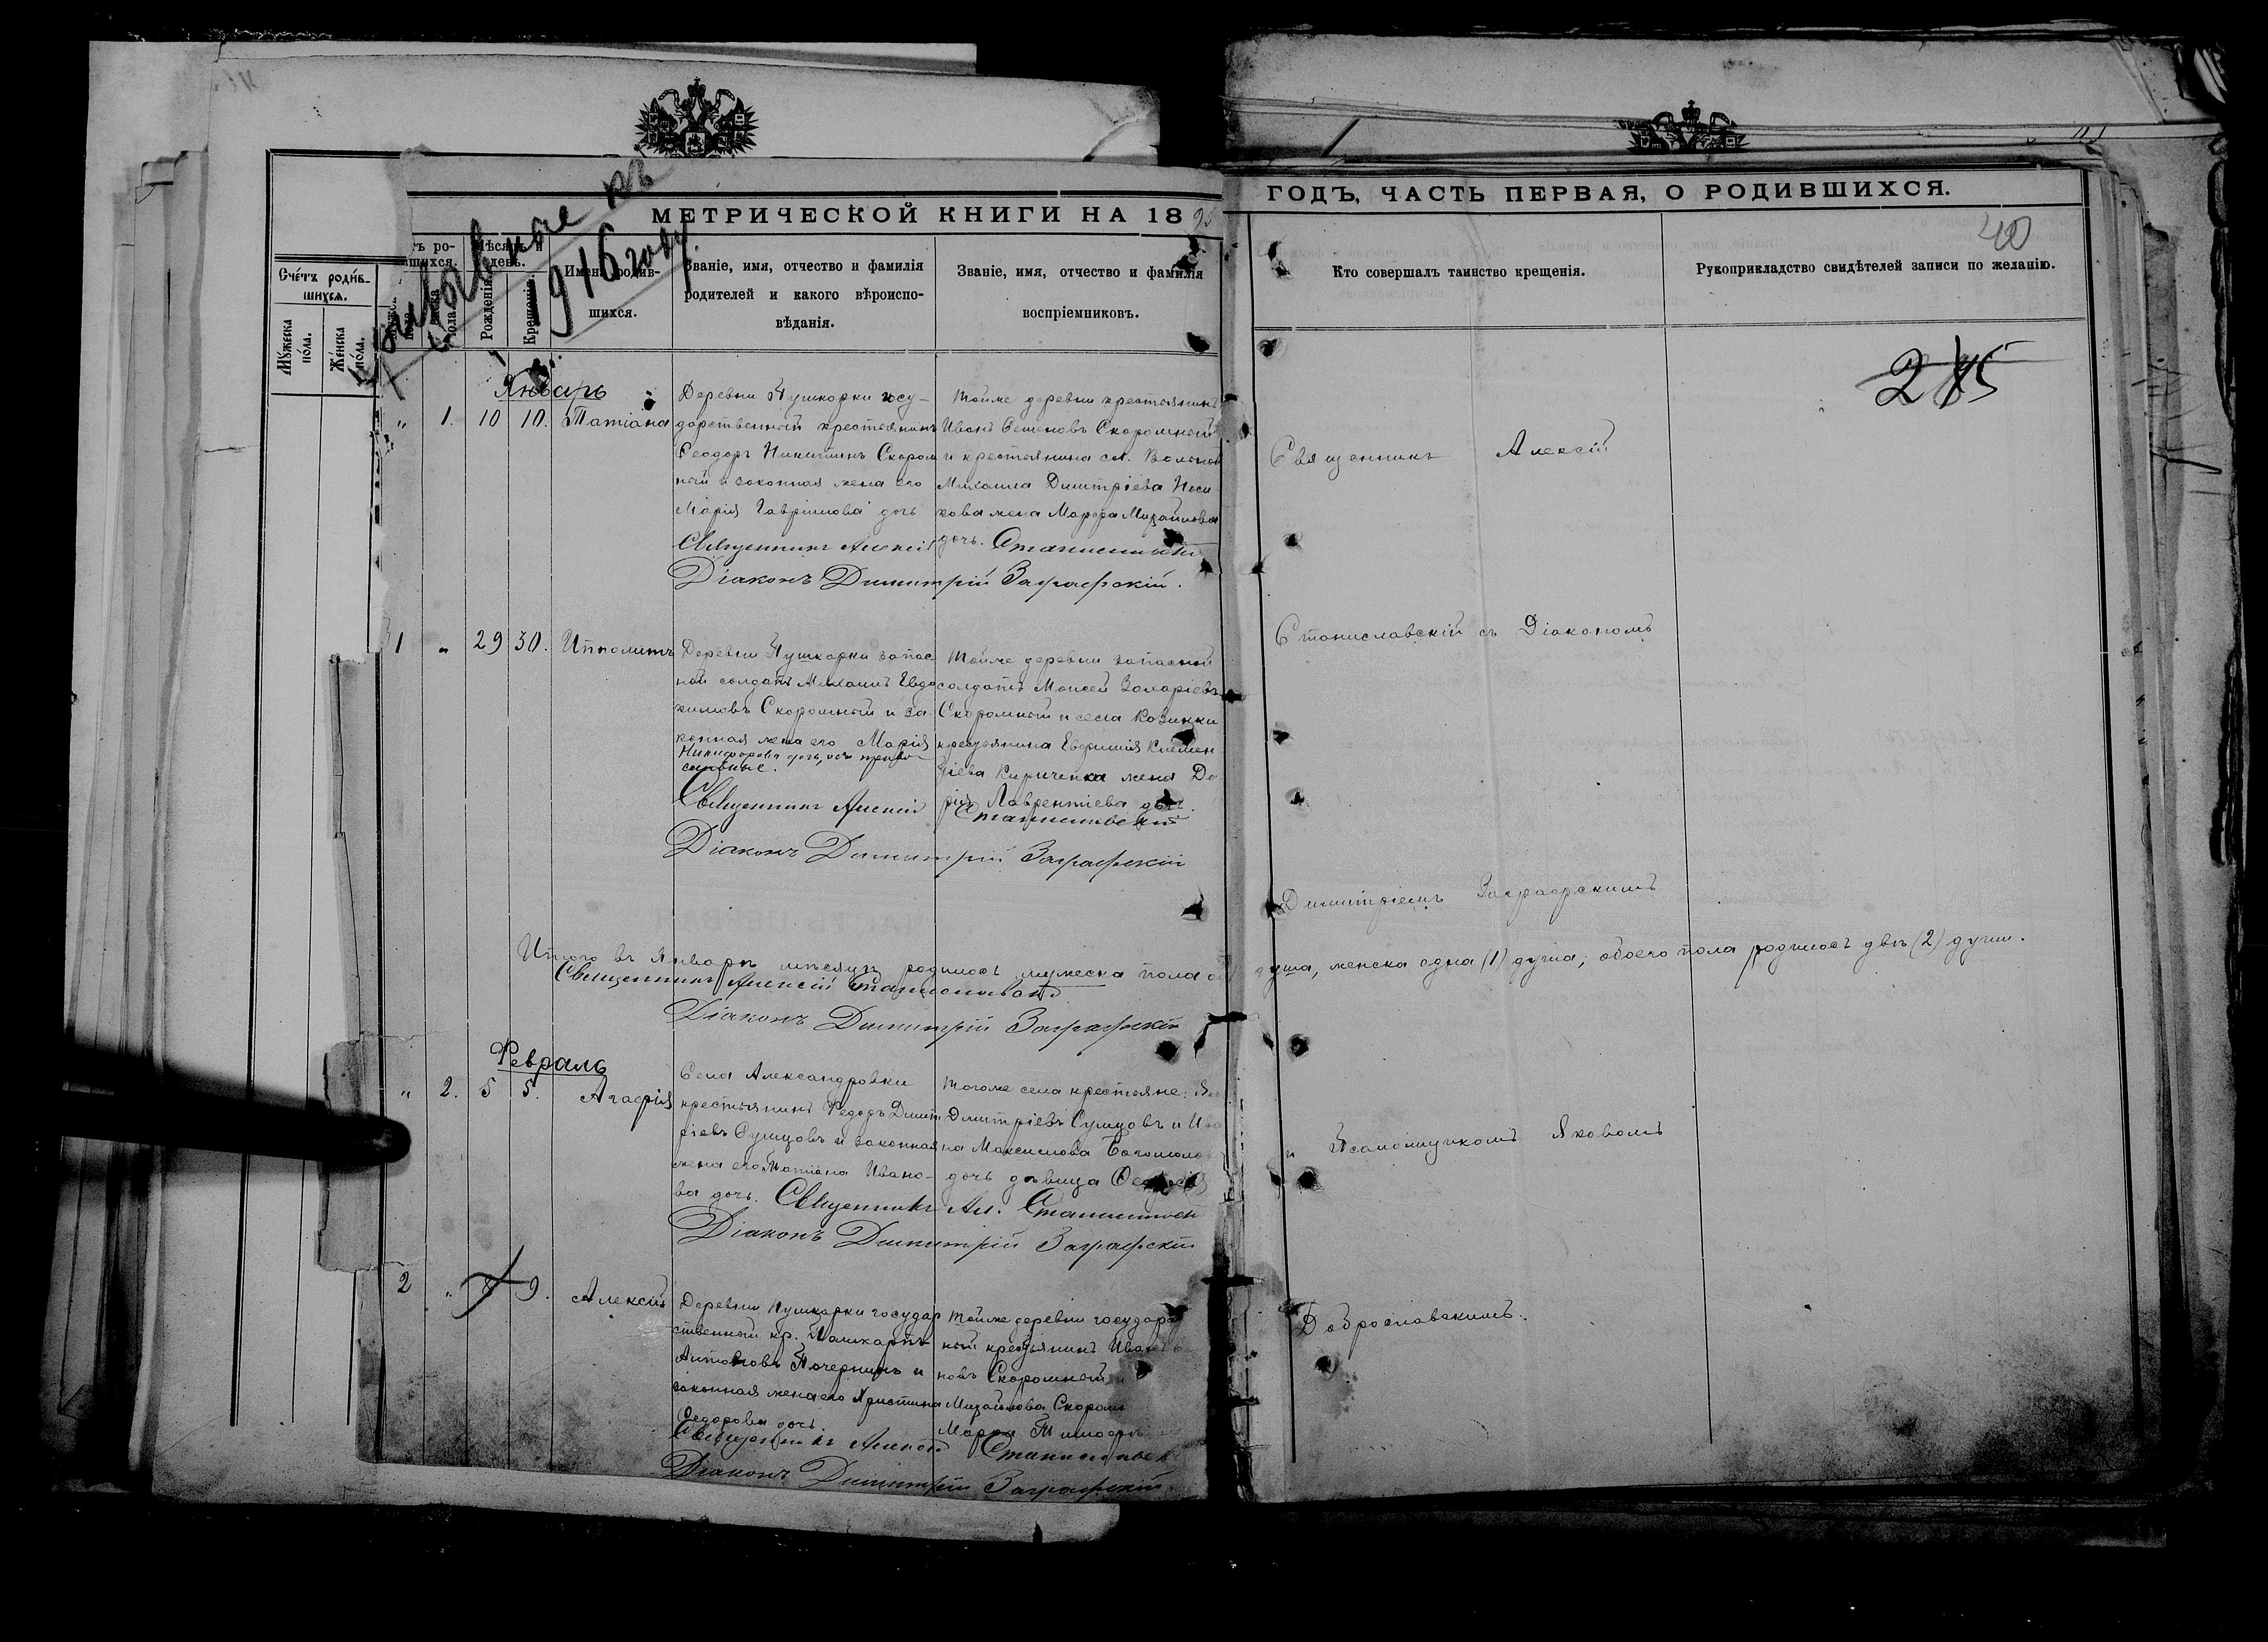 МЕТРИЧЕСКОЙ КНИГИ НА 1895
ГОДЪ, ЧАСТЬ ПЕРВАЯ, О РОДИВШИХСЯ.
40
Призывные къ
1916 году
Счетъ родив-
шихся.
Мужеска пола.
Женска пола.
тъ ро-
вшихся.
Мѣсяцъ и
день.
Рожденія
Крещенія
Имена родив-
шихся.
Званіе, имя, отчество и фамилія
родителей и какого вѣроиспо-
вѣданія.
Званіе, имя, отчество и фамилія
воспріемниковъ.
Кто совершалъ таинство крещенія.
Рукоприкладство свидѣтелей записи по желанію.
Январь
" 1. 10 10. Татіана
Деревни Пушкарки госу-
дарственный крестьянинъ
Ѳеодоръ Никитинъ Скором
ный и законная жена его
Марія Гавріилова дочь
Тойже деревни крестьянинъ
Иванъ Семеновъ Скоромный
и крестьянина сл.
Михаила Димитріева Носи
кова жена Марфа Михайлова
дочь.
Священникъ Алексій Станиславскій
Діаконъ Димитрій Заграфскій.
1 " 29 30. Ипполитъ
Деревни Пушкарки запас
ной солдатъ Михаилъ Евдо
кимовъ Скоромный и за-
конная жена его Марія
Никифорова дочь, оба право-
славные.
Тойже деревни запасной
солдатъ Моисей Захаріевъ
Скоромный и села Козинки
крестьянина Евфимія Климен
тіева Кириченка жена Да
рія Лаврентіева дочь.
Священникъ Алексій Станиславскій
Діаконъ Димитрій Заграфскій
Итого въ Январѣ мѣсяцѣ родилось мужеска пола
душа, женска одна (1) душа; обоего пола родилось двѣ (2) души.
Священникъ Алексій Станиславскій
Діаконъ Димитрій Заграфскій
Февраль
" 2. 5 5. Агафія
Села Александровки
крестьянинъ Ѳедоръ Димит
ріевъ Сумцовъ и законная
жена его Татіана Ивано-
ва дочь.
Тогоже села крестьяне:
Дмитріевъ Сумцовъ и Ива
на Максимова Богомолов
дочь дѣвица
Священникъ Ал. Станиславскій
Діаконъ Димитрій Заграфскій
2 " 8 9. Алексій
Деревни Пушкарки государ
ственный кр.
и
законная жена его Христина
Ѳедорова дочь
Тойже деревни государ
ный крестьянинъ Иванъ
новъ Скоромный и
Михайлова Скором
Марѳа
Священникъ Алексій Станиславск
Діаконъ Димитрій Заграфскій.
Священникъ Алексій
Станиславскій съ Діакономъ
Димитріемъ Заграфскимъ
и Псаломщикомъ Яковомъ
Доброславскимъ.